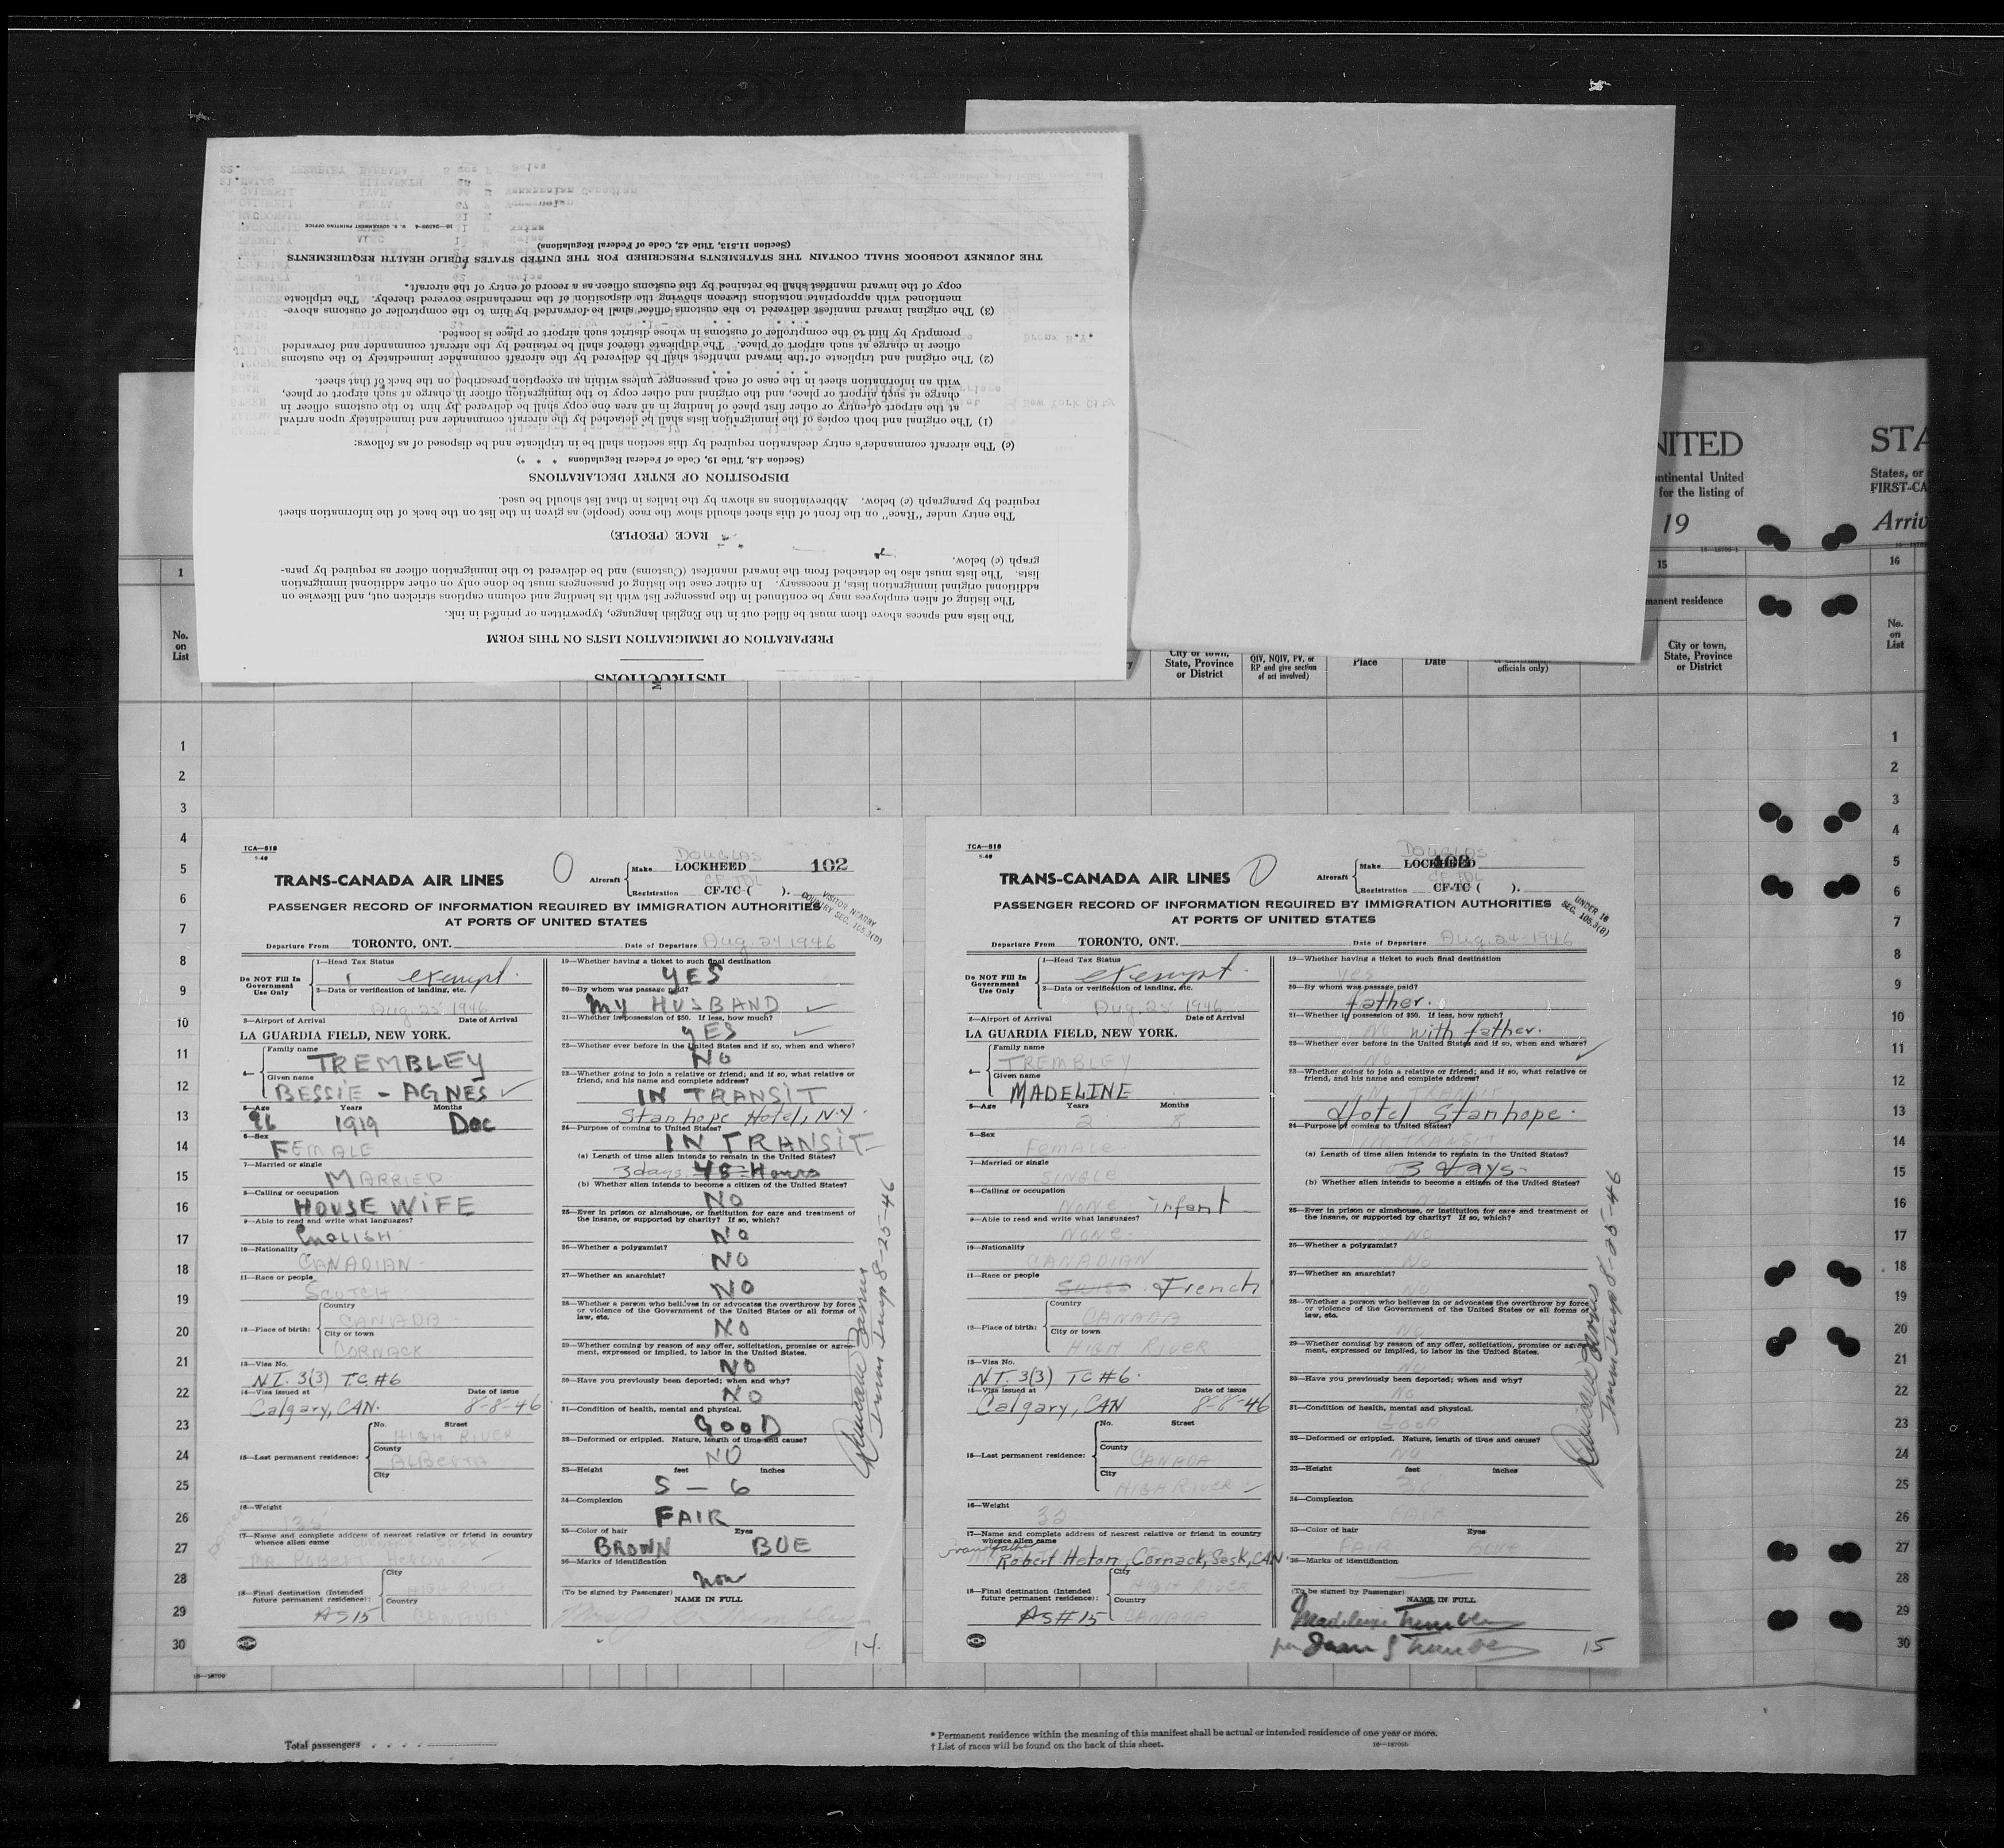 INSTRUCTIONS
PREPARATION OF IMMIGRATION LISTS ON THIS FORM
The lists and spaces above them must be filled out in the English language, typewritten or printed in ink.
The listing of alien employees may be continued in the passenger list with its heading and column captions stricken out, and likewise on
additional original immigration lists, if necessary. In either case the listing of passengers must be done only on other additional immigration
lists. The lists must also be detached from the inward manifest (Customs) and be delivered to the immigration officer as required by para-
graph (c) below.
RACE (PEOPLE)
The entry under "Race" on the front of this sheet should show the race (people) as given in the list on the back of the information sheet
required by paragraph (c) below. Abbreviations as shown by the italics in that list should be used.
DISPOSITION OF ENTRY DECLARATIONS
(Section 4.8, Title 19, Code of Federal Regulations * * *)
(c) The aircraft commander's entry declaration required by this section shall be in triplicate and be disposed of as follows:
(1) The original and both copies of the immigration lists shall be detached by the aircraft commander and immediately upon arrival
at the airport of entry or other first place of landing in an area one copy shall be delivered by him to the customs officer in
charge at such airport or place, and the original and other copy to the immigration officer in charge at such airport or place,
with an information sheet in the case of each passenger unless within an exception prescribed on the back of that sheet.
(2) The original and triplicate of the inward manifest shall be delivered by the aircraft commander immediately to the customs
officer in charge at such airport or place. The duplicate thereof shall be retained by the aircraft commander and forwarded
promptly by him to the comptroller of customs in whose district such airport or place is located.
(3) The original inward manifest delivered to the customs officer shall be forwarded by him to the comptroller of customs above-
mentioned with appropriate notations thereon showing the disposition of the merchandise covered thereby. The triplicate
copy of the inward manifest shall be retained by the customs officer as a record of entry of the aircraft.
THE JOURNEY LOGBOOK SHALL CONTAIN THE STATEMENTS PRESCRIBED FOR THE UNITED STATES PUBLIC HEALTH REQUIREMENTS
(Section 11.513, Title 42, Code of Federal Regulations)
U. S. GOVERNMENT PRINTING OFFICE
NITED
ntinental United
for the listing of
19
STA
States, or
FIRST-CA
Arriv
1
15
16
manent residence
No.
on
List
City or town,
State, Province
or District
QIV, NQIV, PV, or
RP and give section
of act involved)
Place
Date
officials only)
City or town,
State, Province
or District
No.
on
List
1
2
3
4
5
6
7
8
9
10
11
12
13
14
15
16
17
18
19
20
21
22
23
24
25
26
27
28
29
30
TCA—518
1-46
DOUGLAS
Make LOCKHEED
102
Aircraft
CF-TDL
Registration CF-TC ( ).
TRANS-CANADA AIR LINES
VISITOR NEARBY
COUNTRY SEC. 105.3(D)
PASSENGER RECORD OF INFORMATION REQUIRED BY IMMIGRATION AUTHORITIES
AT PORTS OF UNITED STATES
Departure From TORONTO, ONT.
Date of Departure Aug. 24 1946
Do NOT Fill In
Government
Use Only
1—Head Tax Status
exempt.
2—Data or verification of landing, etc.
Aug. 25 1946
3—Airport of Arrival Date of Arrival
LA GUARDIA FIELD, NEW YORK.
4—
Family name
TREMBLEY
Given name
BESSIE - AGNES
5—Age Years Months
26 1919 Dec
6—Sex
FEMALE
7—Married or single
MARRIED
8—Calling or occupation
HOUSE WIFE
9—Able to read and write what languages?
ENGLISH
10—Nationality
CANADIAN
11—Race or people
SCOTCH
12—Place of birth:
Country
CANADA
City or town
CORNACK
13—Visa No.
N.I. 3(3) T.C #6
14—Visa issued at Date of issue
Calgary, CAN. 8-8-46
15—Last permanent residence:
No. Street
HIGH RIVER
County
ALBERTA
City
16—Weight
135
17—Name and complete address of nearest relative or friend in country
whence alien came
Cornack Sask.
Mr. Robert Heton
18—Final destination (Intended
future permanent residence):
City
HIGH RIVER
Country
CANADA
AS 15
19—Whether having a ticket to such final destination
YES
20—By whom was passage paid?
MY HUSBAND
21—Whether in possession of $50. If less, how much?
YES
22—Whether ever before in the United States and if so, when and where?
NO
23—Whether going to join a relative or friend; and if so, what relative or
friend, and his name and complete address?
IN TRANSIT
Stanhope Hotel, N.Y.
24—Purpose of coming to United States?
IN TRANSIT
(a) Length of time alien intends to remain in the United States?
3 days 48 Hours
(b) Whether alien intends to become a citizen of the United States?
NO
25—Ever in prison or almshouse, or institution for care and treatment of
the insane, or supported by charity? If so, which?
NO
26—Whether a polygamist?
NO
27—Whether an anarchist?
NO
28—Whether a person who believes in or advocates the overthrow by force
or violence of the Government of the United States or all forms of
law, etc.
NO
29—Whether coming by reason of any offer, solicitation, promise or agree-
ment, expressed or implied, to labor in the United States.
NO
30—Have you previously been deported; when and why?
NO
31—Condition of health, mental and physical.
GOOD
32—Deformed or crippled. Nature, length of time and cause?
NO
33—Height feet inches
5 - 6
34—Complexion
FAIR
35—Color of hair Eyes
BROWN BUE
36—Marks of identification
None
(To be signed by Passenger)
NAME IN FULL
14.
Imm Insp 8-25-46
TCA—518
1-46
DOUGLAS
Make LOCKHEED
102
Aircraft
CF-TDL
Registration CF-TC ( ).
TRANS-CANADA AIR LINES
UNDER 16
SEC. 105.3(B)
PASSENGER RECORD OF INFORMATION REQUIRED BY IMMIGRATION AUTHORITIES
AT PORTS OF UNITED STATES
Departure From TORONTO, ONT.
Date of Departure Aug. 24-1946
Do NOT Fill In
Government
Use Only
1—Head Tax Status
exempt.
2—Data or verification of landing, etc.
Aug. 25 1946
3—Airport of Arrival Date of Arrival
LA GUARDIA FIELD, NEW YORK.
4—
Family name
TREMBLEY
Given name
MADELINE
5—Age Years Months
2 8
6—Sex
Female
7—Married or single
SINGLE
8—Calling or occupation
NONE infant
9—Able to read and write what languages?
NONE.
10—Nationality
CANADIAN
11—Race or people
SWISS French
12—Place of birth:
Country
CANADA
City or town
HIGH RIVER
13—Visa No.
N.I. 3(3) TC #6.
14—Visa issued at Date of issue
Calgary, CAN 8-8-46
15—Last permanent residence:
No. Street
County
CANADA
City
HIGH RIVER
16—Weight
32
17—Name and complete address of nearest relative or friend in country
whence alien came
grandfather
Robert Heton, Cornack, Sask, CAN
18—Final destination (Intended
future permanent residence):
City
HIGH RIVER
Country
CANADA
AS #15
19—Whether having a ticket to such final destination
yes
20—By whom was passage paid?
father.
21—Whether in possession of $50. If less, how much?
No with father.
22—Whether ever before in the United States and if so, when and where?
NO
23—Whether going to join a relative or friend; and if so, what relative or
friend, and his name and complete address?
IN TRANSIT
Hotel Stanhope.
24—Purpose of coming to United States?
IN TRANSIT
(a) Length of time alien intends to remain in the United States?
3 days.
(b) Whether alien intends to become a citizen of the United States?
25—Ever in prison or almshouse, or institution for care and treatment of
the insane, or supported by charity? If so, which?
NO
26—Whether a polygamist?
NO
27—Whether an anarchist?
NO
28—Whether a person who believes in or advocates the overthrow by force
or violence of the Government of the United States or all forms of
law, etc.
NO
29—Whether coming by reason of any offer, solicitation, promise or agree-
ment, expressed or implied, to labor in the United States.
NO
30—Have you previously been deported; when and why?
NO
31—Condition of health, mental and physical.
GOOD
32—Deformed or crippled. Nature, length of time and cause?
NO
33—Height feet inches
34—Complexion
FAIR
35—Color of hair Eyes
FAIR BLUE
36—Marks of identification
(To be signed by Passenger)
NAME IN FULL
Madeline Trembley
per
15
Imm Insp 8-25-46
1
2
3
4
5
6
7
8
9
10
11
12
13
14
15
16
17
18
19
20
21
22
23
24
25
26
27
28
29
30
Total passengers
* Permanent residence within the meaning of this manifest shall be actual or intended residence of one year or more.
† List of races will be found on the back of this sheet.